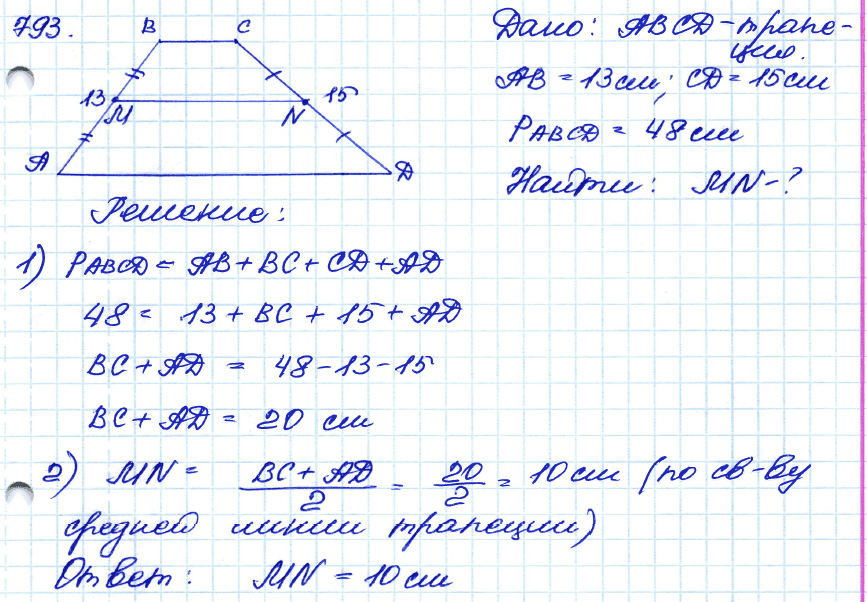 793.
B C
13 M N 15
A D
Дано: ABCD - трапе-
ция.
AB = 13 см; CD = 15 см
PABCD = 48 см
Найти: MN - ?
Решение:
1) PABCD = AB + BC + CD + AD
48 = 13 + BC + 15 + AD
BC + AD = 48 - 13 - 15
BC + AD = 20 см
2) MN = BC + AD / 2 = 20 / 2 = 10 см (по св-ву
средней линии трапеции)
Ответ: MN = 10 см